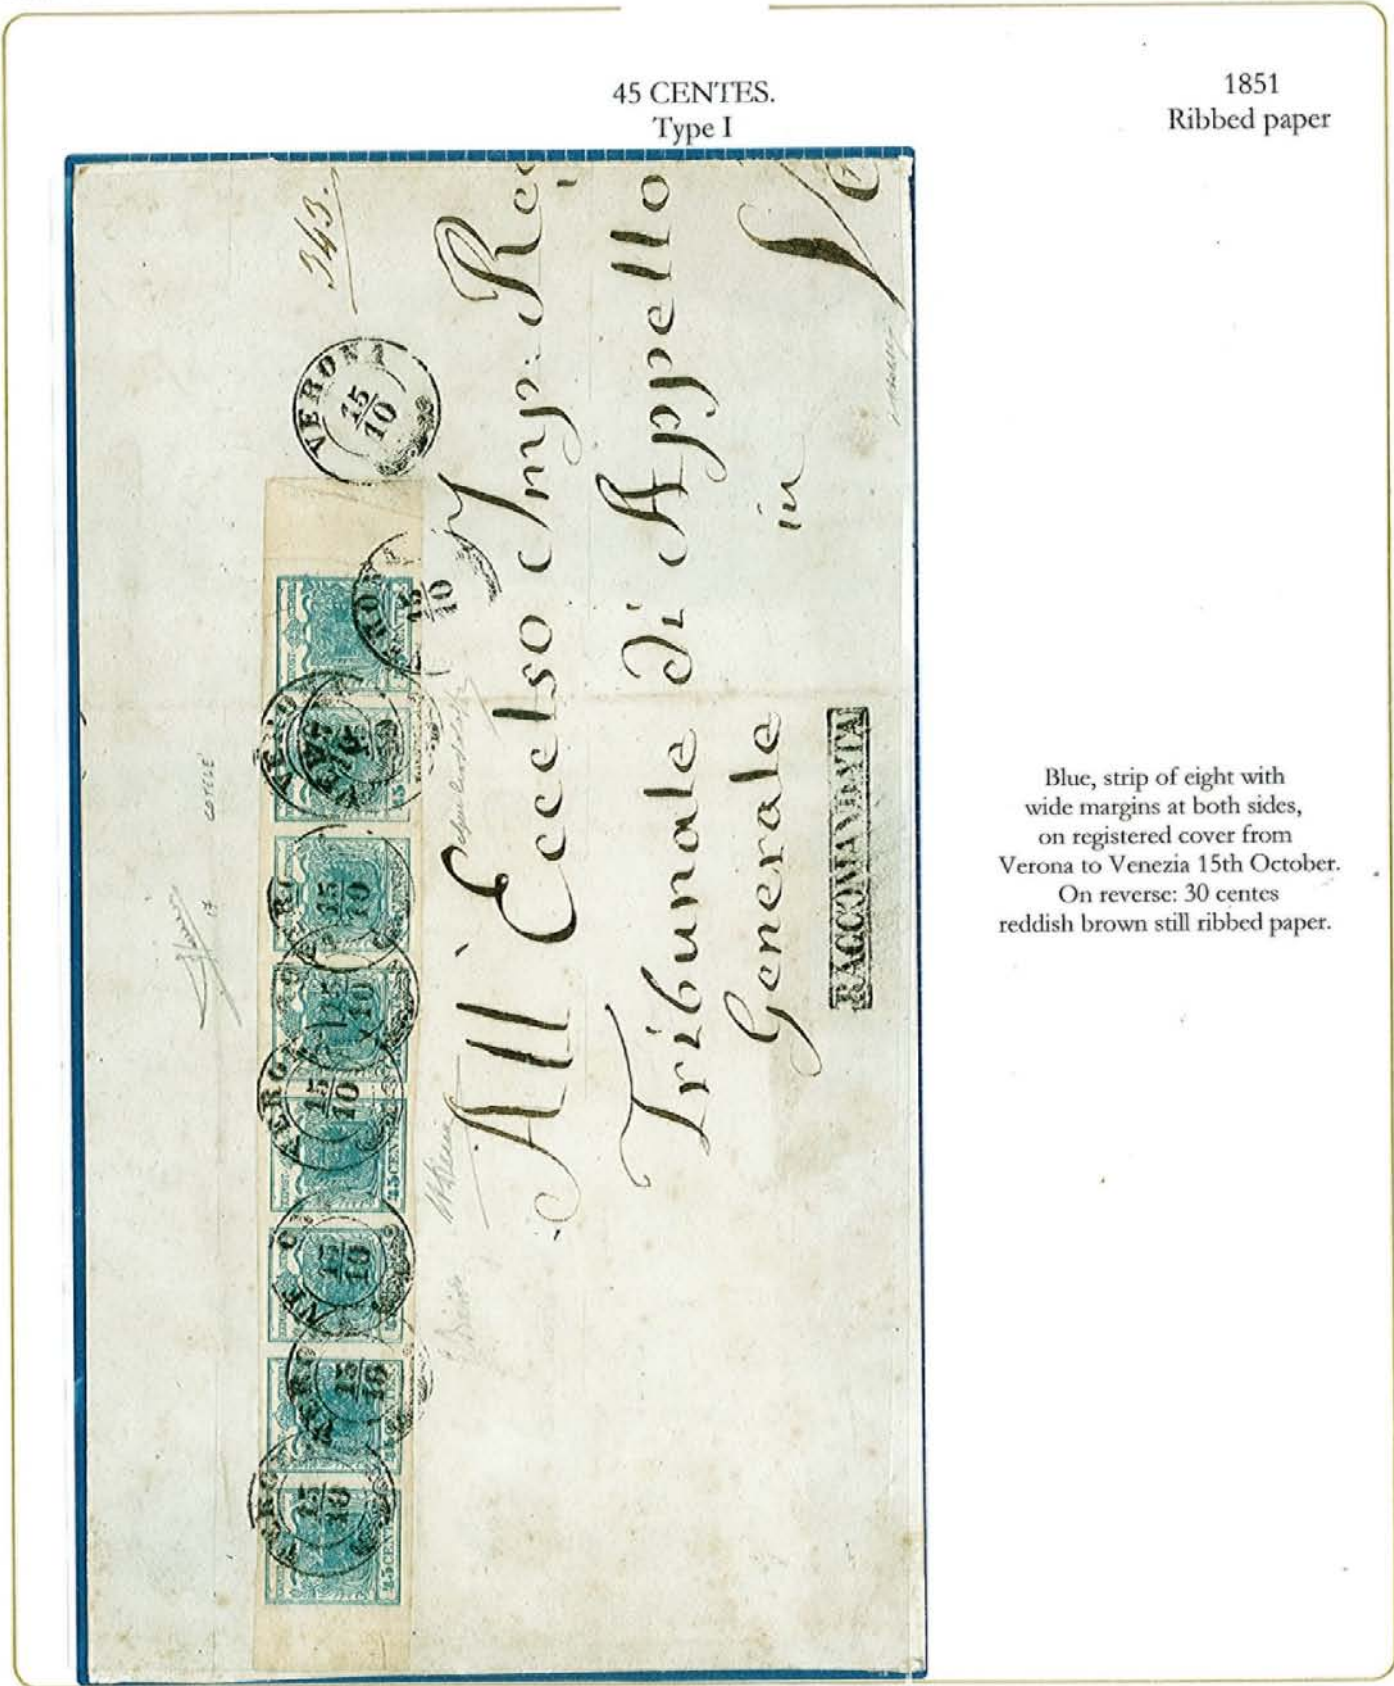 45 CENTES.
Type I
1851
Ribbed paper
343.
VERONA
15/10
All' Eccelso Imp. Re
Tribunale di Appello
Generale in Ve
RACCOMANDATA
45 CENTES
15/10
15/10
15/10
15/10
15/10
15/10
Blue, strip of eight with
wide margins at both sides,
on registered cover from
Verona to Venezia 15th October.
On reverse: 30 centes
reddish brown still ribbed paper.